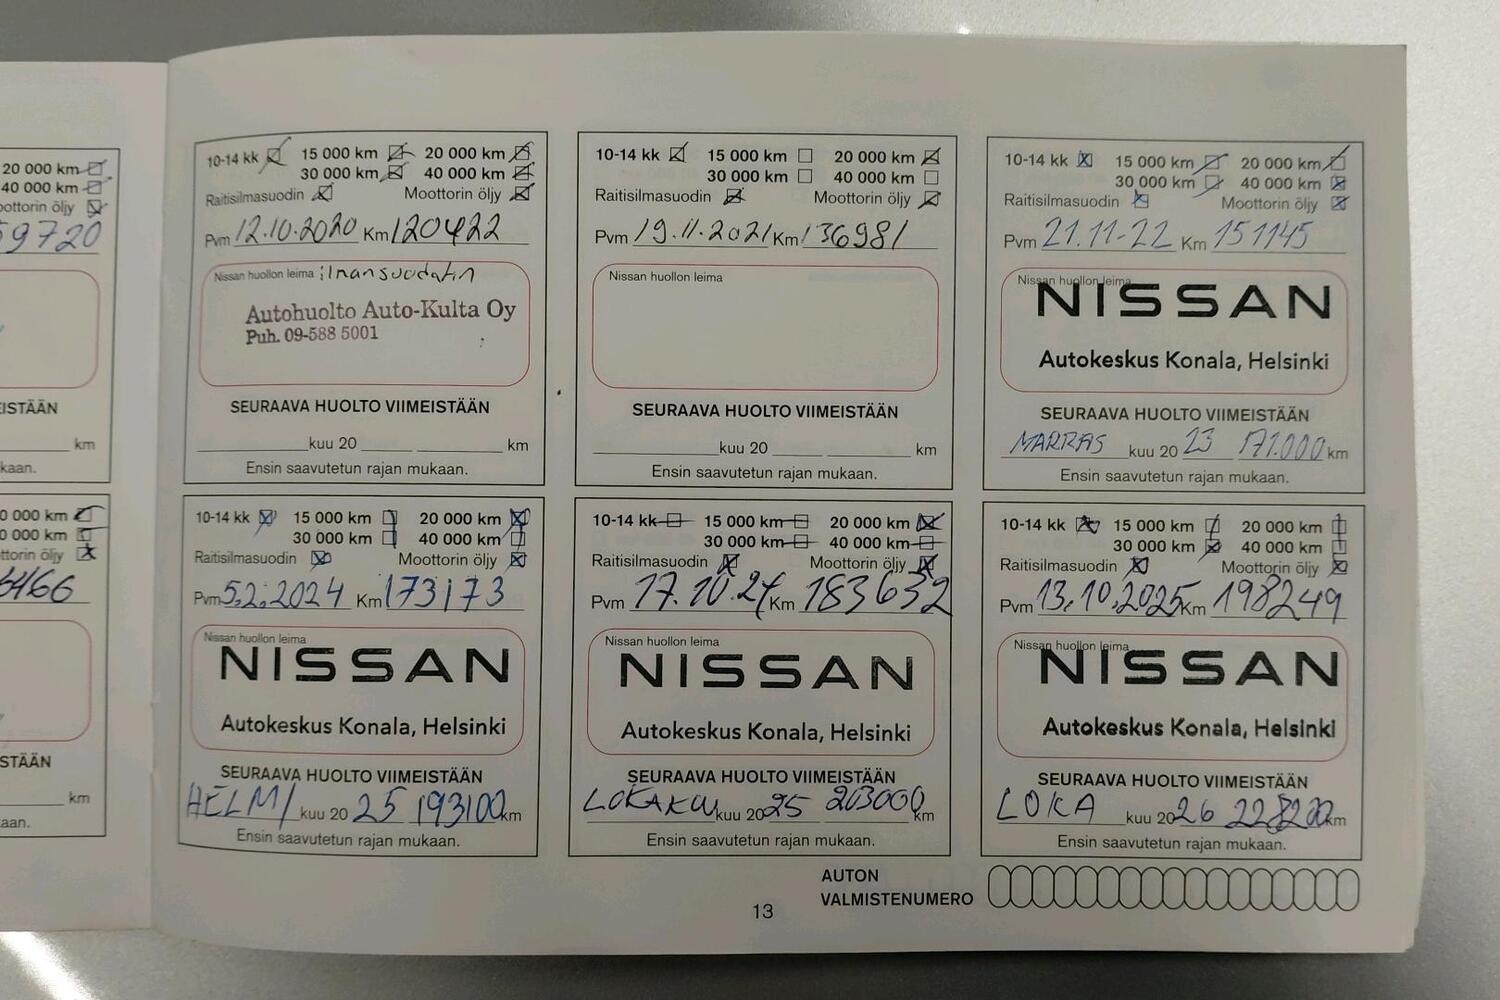 20 000 km
40 000 km
oottorin öljy
59720
EISTÄÄN
km
kaan.
0 000 km
0 000 km
ttorin öljy
6466
STÄÄN
km
aan.
10-14 kk 15 000 km 20 000 km
30 000 km 40 000 km
Raitisilmasuodin Moottorin öljy
Pvm 12.10.2020 Km 120422
Nissan huollon leima ilmansuodatin
Autohuolto Auto-Kulta Oy
Puh. 09-588 5001
SEURAAVA HUOLTO VIIMEISTÄÄN
kuu 20 km
Ensin saavutetun rajan mukaan.
10-14 kk 15 000 km 20 000 km
30 000 km 40 000 km
Raitisilmasuodin Moottorin öljy
Pvm 19.11.2021 Km 136981
Nissan huollon leima
SEURAAVA HUOLTO VIIMEISTÄÄN
kuu 20 km
Ensin saavutetun rajan mukaan.
10-14 kk 15 000 km 20 000 km
30 000 km 40 000 km
Raitisilmasuodin Moottorin öljy
Pvm 21.11-22 Km 151145
Nissan huollon leima
NISSAN
Autokeskus Konala, Helsinki
SEURAAVA HUOLTO VIIMEISTÄÄN
MARRAS kuu 20 23 171.000 km
Ensin saavutetun rajan mukaan.
10-14 kk 15 000 km 20 000 km
30 000 km 40 000 km
Raitisilmasuodin Moottorin öljy
Pvm 5.2.2024 Km 173173
Nissan huollon leima
NISSAN
Autokeskus Konala, Helsinki
SEURAAVA HUOLTO VIIMEISTÄÄN
HELMI kuu 20 25 193100 km
Ensin saavutetun rajan mukaan.
10-14 kk 15 000 km 20 000 km
30 000 km 40 000 km
Raitisilmasuodin Moottorin öljy
Pvm 17.10.24 Km 183632
Nissan huollon leima
NISSAN
Autokeskus Konala, Helsinki
SEURAAVA HUOLTO VIIMEISTÄÄN
LOKAKUU kuu 20 25 203000 km
Ensin saavutetun rajan mukaan.
10-14 kk 15 000 km 20 000 km
30 000 km 40 000 km
Raitisilmasuodin Moottorin öljy
Pvm 13.10.2025 Km 198249
Nissan huollon leima
NISSAN
Autokeskus Konala, Helsinki
SEURAAVA HUOLTO VIIMEISTÄÄN
LOKA kuu 20 26 228200 km
Ensin saavutetun rajan mukaan.
AUTON
VALMISTENUMERO
13